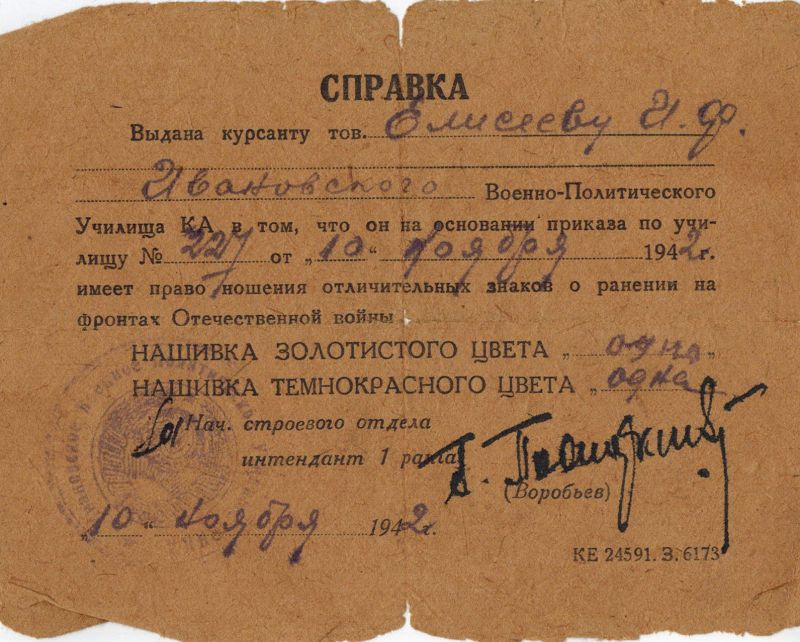 СПРАВКА
Выдана курсанту тов. Елисееву И. Ф.
Ивановского Военно-Политического
Училища КА в том, что он на основании приказа по учи-
лищу № 227 от „10“ ноября 1942 г.
имеет право ношения отличительных знаков о ранении на
фронтах Отечественной войны
НАШИВКА ЗОЛОТИСТОГО ЦВЕТА „одна“
НАШИВКА ТЕМНОКРАСНОГО ЦВЕТА „одна
Нач. строевого отдела
интендант 1 ранга
(Воробьев)
„10“ ноября 1942 г.
КЕ 24591. З. 6173